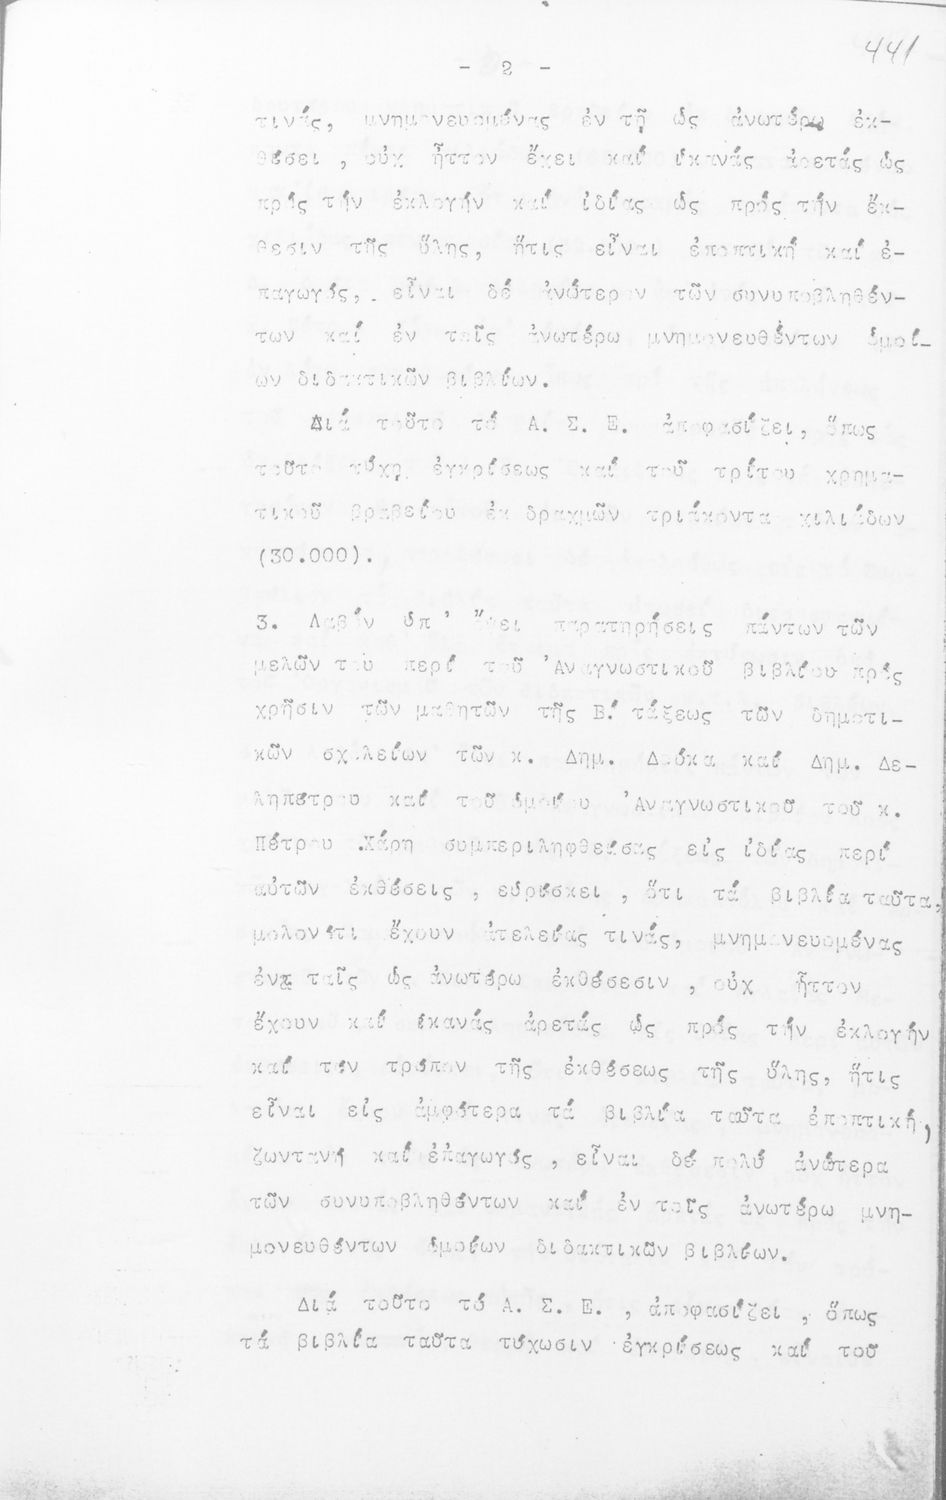 441
- 2 -
τινάς, μνημονευομένας ἐν τῇ ὡς ἀνωτέρω ἐκ-
θέσει , οὐχ ἧττον ἔχει καί ἱκανάς ἀρετάς ὡς
πρός τήν ἐκλογήν καί ἰδίας ὡς πρός τήν ἔκ-
θεσιν τῆς ὕλης, ἥτις εἶναι ἐποπτική καί ἐ-
παγωγός, εἶναι δέ ἀνώτερον τῶν συνυποβληθέν-
των καί ἐν ταῖς ἀνωτέρω μνημονευθέντων ὁμοί-
ων διδακτικῶν βιβλίων.
Διά τοῦτο τό Α. Σ. Ε. ἀποφασίζει, ὅπως
τοῦτο τύχῃ ἐγκρίσεως καί τοῦ τρίτου χρημα-
τικοῦ βραβείου ἐκ δραχμῶν τριάκοντα χιλιάδων
(30.000).
3. Λαβόν ὑπ' ὄψει παρατηρήσεις πάντων τῶν
μελῶν του περί τοῦ 'Αναγνωστικοῦ βιβλίου πρός
χρῆσιν τῶν μαθητῶν τῆς Β΄ τάξεως τῶν δημοτι-
κῶν σχολείων τῶν κ. Δημ. Δούκα καί Δημ. Δε-
ληπέτρου καί τοῦ ὁμοίου 'Αναγνωστικοῦ τοῦ κ.
Πέτρου Χάρη συμπεριληφθείσας εἰς ἰδίας περί
αὐτῶν ἐκθέσεις , εὑρίσκει , ὅτι τά βιβλία ταῦτα,
μολονότι ἔχουν ἀτελείας τινάς, μνημονευομένας
ἐν ταῖς ὡς ἀνωτέρω ἐκθέσεσιν , οὐχ ἧττον
ἔχουν καί ἱκανάς ἀρετάς ὡς πρός τήν ἐκλογήν
καί τόν τρόπον τῆς ἐκθέσεως τῆς ὕλης, ἥτις
εἶναι εἰς ἀμφότερα τά βιβλία ταῦτα ἐποπτική,
ζωντανή καί ἐπαγωγός , εἶναι δέ πολύ ἀνώτερα
τῶν συνυποβληθέντων καί ἐν τοῖς ἀνωτέρω μνη-
μονευθέντων ὁμοίων διδακτικῶν βιβλίων.
Διά τοῦτο τό Α. Σ. Ε. , ἀποφασίζει , ὅπως
τά βιβλία ταῦτα τύχωσιν ἐγκρίσεως καί τοῦ